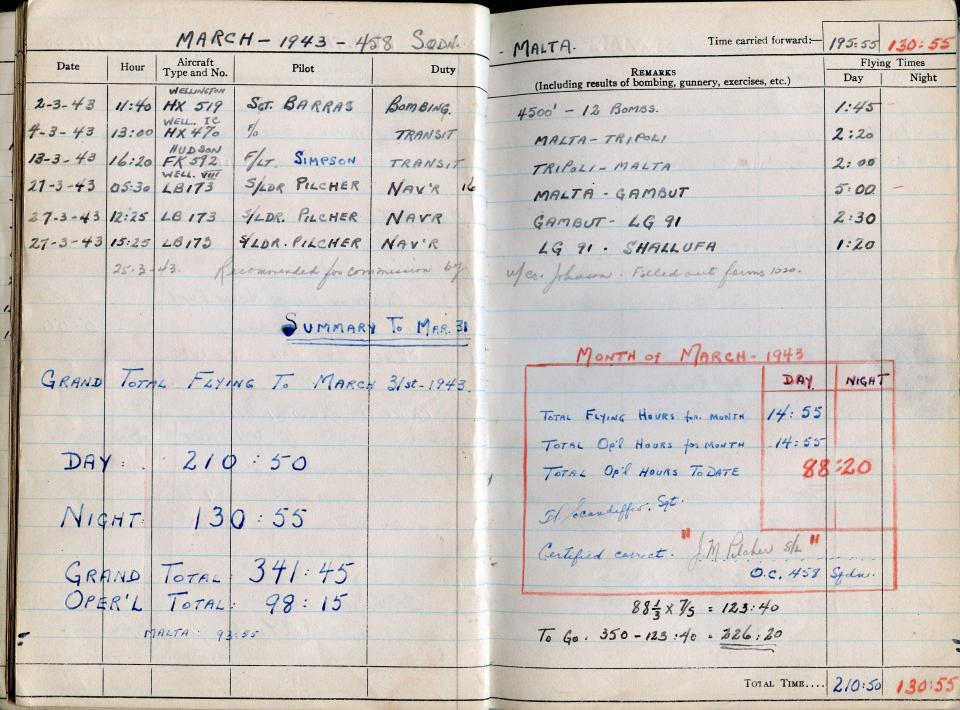 MARCH - 1943 - 458 SQDN.
Date Hour Aircraft Type and No. Pilot Duty
2-3-43 11:40 WELLINGTON HX 519 SGT. BARRAS BOMBING.
4-3-43 13:00 WELL. IC HX 470 TRANSIT
13-3-43 16:20 HUDSON FK 592 F/LT. SIMPSON TRANSIT
27-3-43 05:30 WELL. VIII LB173 S/LDR PILCHER NAV'R 16
27-3-43 12:25 LB173 S/LDR. PILCHER NAV'R
27-3-43 15:25 LB173 S/LDR. PILCHER NAV'R
25-3-43. Recommended for commission by
SUMMARY TO MAR. 31
GRAND TOTAL FLYING TO MARCH 31st-1943.
DAY: 210:50
NIGHT: 130:55
GRAND TOTAL: 341:45
OPER'L TOTAL: 98:15
MALTA: 93:55
- MALTA. Time carried forward:— 195:55 130:55
REMARKS
(Including results of bombing, gunnery, exercises, etc.)
Flying Times
Day Night
4500' - 12 BOMBS. 1:45
MALTA-TRIPOLI 2:20
TRIPOLI-MALTA 2:00
MALTA-GAMBUT 5:00
GAMBUT-LG 91 2:30
LG 91 - SHALLUFA 1:20
W/Cr. Johnson. Filled out forms 1020.
MONTH of MARCH-1943
DAY NIGHT
TOTAL FLYING HOURS for MONTH 14:55
TOTAL Op'l HOURS for MONTH 14:55
TOTAL Op'l HOURS TO DATE 88:20
Sgt.
Certified correct. "J.M Pilcher S/L"
O.C. 458 Sqdn.
88 1/3 x 7/5 = 123:40
TO GO. 350-123:40 = 226:20
TOTAL TIME.... 210:50 130:55